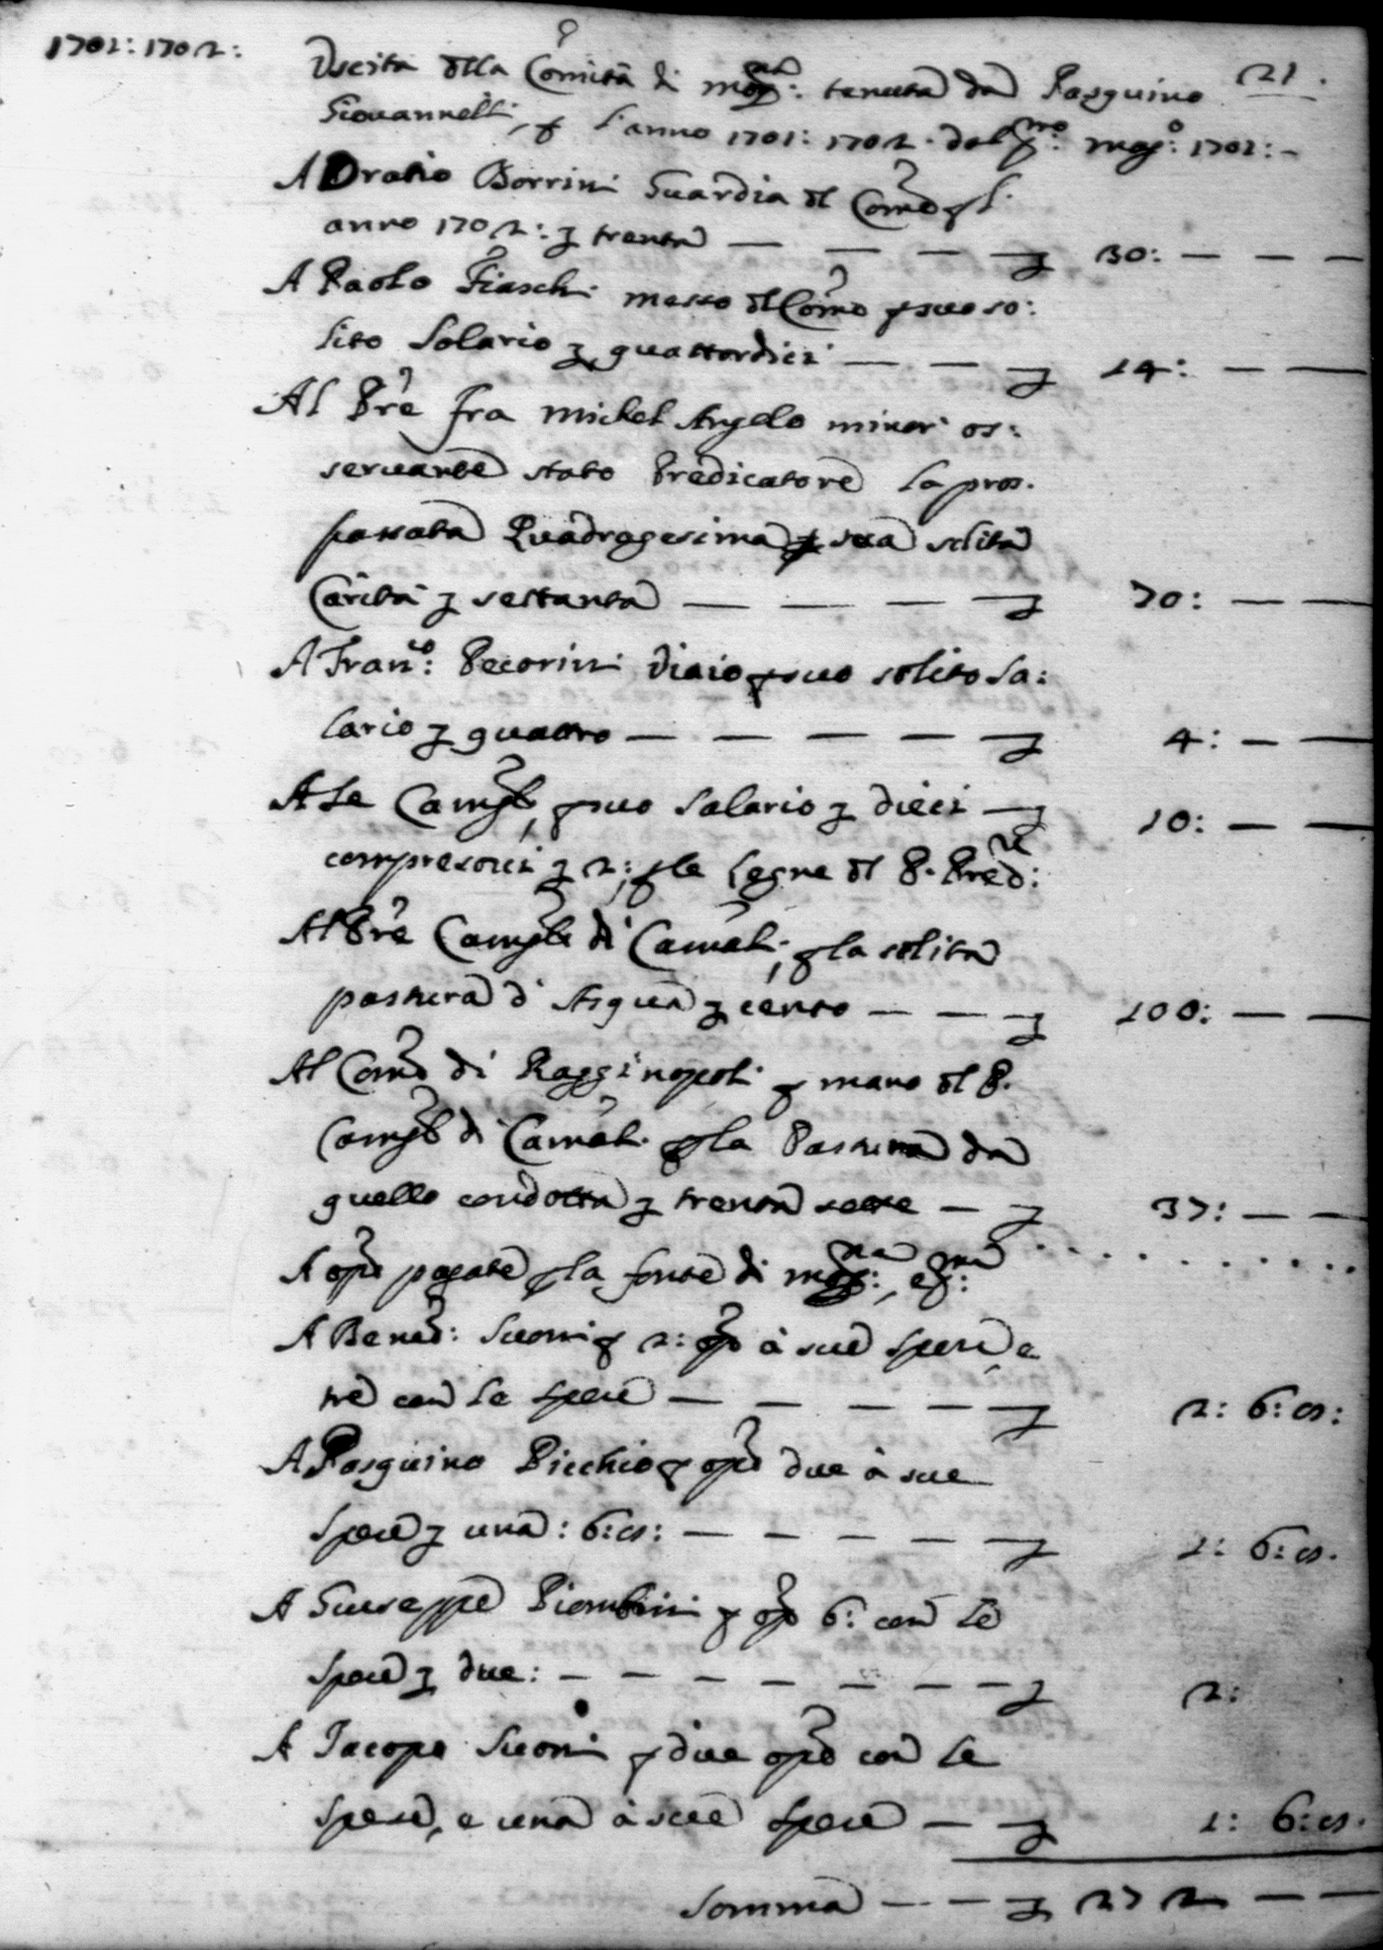 1701: 1702:
Uscita della Comità di mog.na: tenuta da Pasquino 21.
Giovannelli, p l'anno 1701: 1702. dal p.mo: mag.o: 1701:-
A Oratio Borrini Guardia dl Com̃o p l'
anno 1702: ʒ trenta — — — — ʒ 30: — — —
A Paolo Fiaschi messo dl Com̃o p suo so:
lito Solario ʒ quattordici — — — ʒ 14: — —
Al Pr̃e fra Michel Angelo minor os:
servante stato Predicatore la pros.
passata Quadragesima p sua solita
Carità ʒ settanta — — — ʒ 70: — —
A Fran.co: Pecorini Viaio p suo solito Sa:
lario ʒ quattro — — — — — ʒ 4: — —
A Le Camgl, p suo Salario ʒ dieci — ʒ 10: — —
compresovi ʒ 2: p le Legne dl P. Pred.re:
Al Pr̃e Camgle di Camal:, p la solita
pastura d' Asqua ʒ cento — — — ʒ 100: — —
Al Com̃o di Ragginopoli p mano dl P.
Camgl di Camal. p la Pastura da
quello condotta ʒ trenta sette — ʒ 37: — —
A op̃e pagate p la fonte di mog.na:, e p.ma:
A Bened: Suorri p 2: op̃e à sue spese, e
tre con le spese — — — — — ʒ 2: 6: 8:
A Pasquino Picchio p op̃e due à sue
spese ʒ una: 6: 8: — — — — — ʒ 1: 6: 8.
A Giuseppe Piombini p op̃e 6: con le
spese ʒ due: — — — — — — — ʒ 2:
A Jacopo Suorri p due op̃e con le
spese, e una à sue spese — — ʒ 1: 6: 8.
Somma — — — ʒ 272 — —